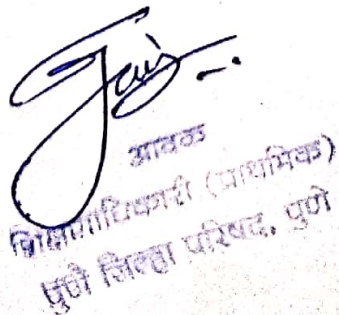 आवक
शिक्षणाधिकारी (प्राथमिक)
पुणे जिल्हा परिषद, पुणे